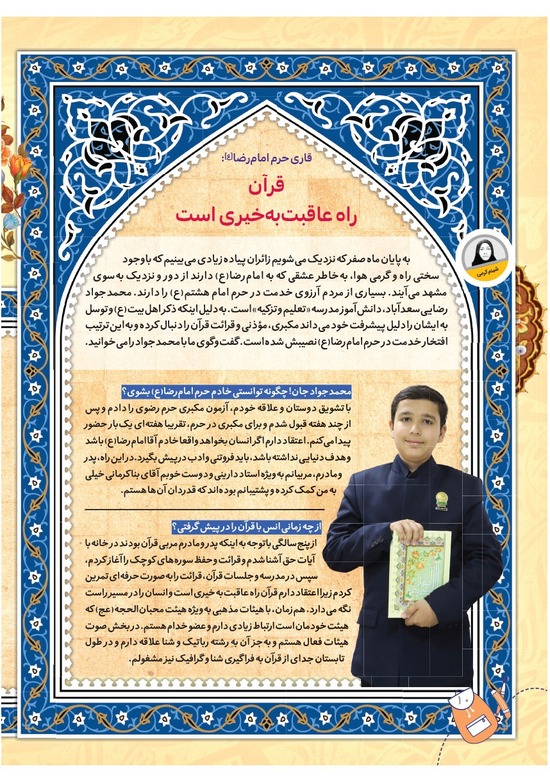 قاری حرم امام رضا(ع):
قرآن
راه عاقبت‌به‌خیری است
به پایان ماه صفر که نزدیک می‌شویم زائران پیاده زیادی می‌بینیم که باوجود
سختی راه و گرمی هوا، به خاطر عشقی که به امام رضا(ع) دارند از دور و نزدیک به سوی
مشهد می‌آیند. بسیاری از مردم آرزوی خدمت در حرم امام هشتم(ع) را دارند. محمدجواد
رضایی سعدآباد، دانش‌آموز مدرسه «تعلیم و تزکیه» است. به دلیل اینکه ذکر اهل بیت(ع) و توسل
به ایشان را دلیل پیشرفت خود می‌داند مکبری، مؤذنی و قرائت قرآن را دنبال کرده و به این ترتیب
افتخار خدمت در حرم امام رضا(ع) نصیبش شده است. گفت‌وگوی ما با محمدجواد را می‌خوانید.
شبنم کرمی
محمدجواد جان! چگونه توانستی خادم حرم امام رضا(ع) بشوی؟
با تشویق دوستان و علاقه خودم، آزمون مکبری حرم رضوی را دادم و پس
از چند هفته قبول شدم و برای مکبری در حرم، تقریبا هفته‌ای یک بار حضور
پیدا می‌کنم. اعتقاد دارم اگر انسان بخواهد واقعا خادم آقا امام رضا(ع) باشد
و هدف دنیایی نداشته باشد، باید فروتنی و ادب در پیش بگیرد. در این راه، پدر
و مادرم، مربیانم به ویژه استاد دارینی و دوست خوبم آقای بناکرمانی خیلی
به من کمک کرده و پشتیبانم بوده‌اند که قدردان آن‌ها هستم.
از چه زمانی انس با قرآن را در پیش گرفتی؟
از پنج سالگی با توجه به اینکه پدر و مادرم مربی قرآن بودند در خانه با
آیات حق آشنا شدم و قرائت و حفظ سوره‌های کوچک را آغاز کردم،
سپس در مدرسه و جلسات قرآن، قرائت را به صورت حرفه‌ای تمرین
کردم زیرا اعتقاد دارم قرآن راه عاقبت به خیری است و انسان را در مسیر راست
نگه می‌دارد. هم‌زمان، با هیئات مذهبی به ویژه هیئت محبان الحجه(عج) که
هیئت خودمان است ارتباط زیادی دارم و عضو خدام هستم. در بخش صوت
هیئات فعال هستم و به جز آن به رشته رباتیک و شنا علاقه دارم و در طول
تابستان جدای از قرآن به فراگیری شنا و گرافیک نیز مشغولم.